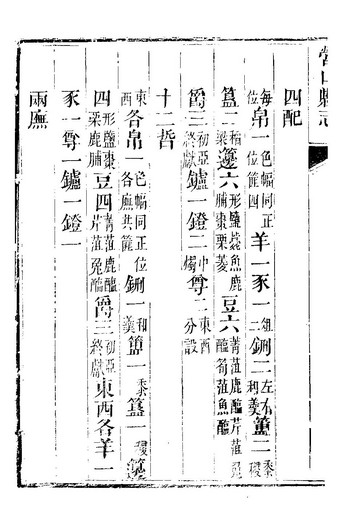 營山縣志
四配
每位帛一色幅同正位羊一豕一俎二鉶二左右和羹簠二黍稷
簋二稻粱籩六形鹽藁魚鹿脯棗栗菱豆六菁菹鹿醢芹菹兎醢筍菹魚醢
爵三初亞終獻鑪一鐙二中燭尊二東西分設
十二哲
東西各帛一色幅同正位各廡共篚鉶一和羹簠一黍簋一稷籩
四形鹽棗栗鹿脯豆四菁菹鹿醢芹菹兎醢爵三初亞終獻東西各羊一
豕一尊一鑪一鐙一
兩廡